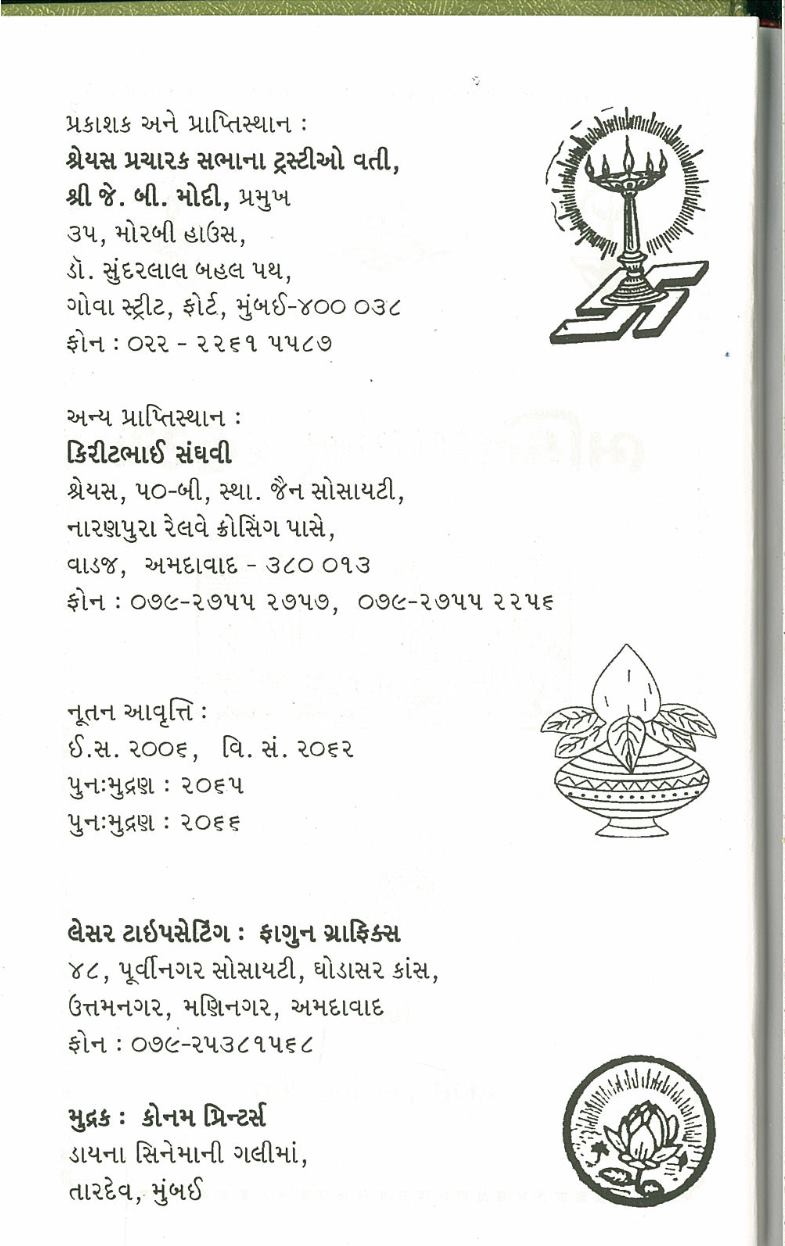 પ્રકાશક અને પ્રાપ્તિસ્થાન :
શ્રેયસ પ્રચારક સભાના ટ્રસ્ટીઓ વતી,
શ્રી જે. બી. મોદી, પ્રમુખ
૩૫, મોરબી હાઉસ,
ડૉ. સુંદરલાલ બહલ પથ,
ગોવા સ્ટ્રીટ, ફોર્ટ, મુંબઈ-૪૦૦ ૦૩૮
ફોન : ૦૨૨ - ૨૨૬૧ ૫૫૮૭
અન્ય પ્રાપ્તિસ્થાન :
કિરીટભાઈ સંઘવી
શ્રેયસ, ૫૦-બી, સ્થા. જૈન સોસાયટી,
નારણપુરા રેલવે ક્રોસિંગ પાસે,
વાડજ, અમદાવાદ - ૩૮૦ ૦૧૩
ફોન : ૦૭૯-૨૭૫૫ ૨૭૫૭, ૦૭૯-૨૭૫૫ ૨૨૫૬
નૂતન આવૃત્તિ :
ઈ.સ. ૨૦૦૬, વિ. સં. ૨૦૬૨
પુનઃમુદ્રણ : ૨૦૬૫
પુનઃમુદ્રણ : ૨૦૬૬
લેસર ટાઇપસેટિંગ : ફાગુન ગ્રાફિક્સ
૪૮, પૂર્વીનગર સોસાયટી, ઘોડાસર કાંસ,
ઉત્તમનગર, મણિનગર, અમદાવાદ
ફોન : ૦૭૯-૨૫૩૮૧૫૬૮
મુદ્રક : કોનમ પ્રિન્ટર્સ
ડાયના સિનેમાની ગલીમાં,
તારદેવ, મુંબઈ